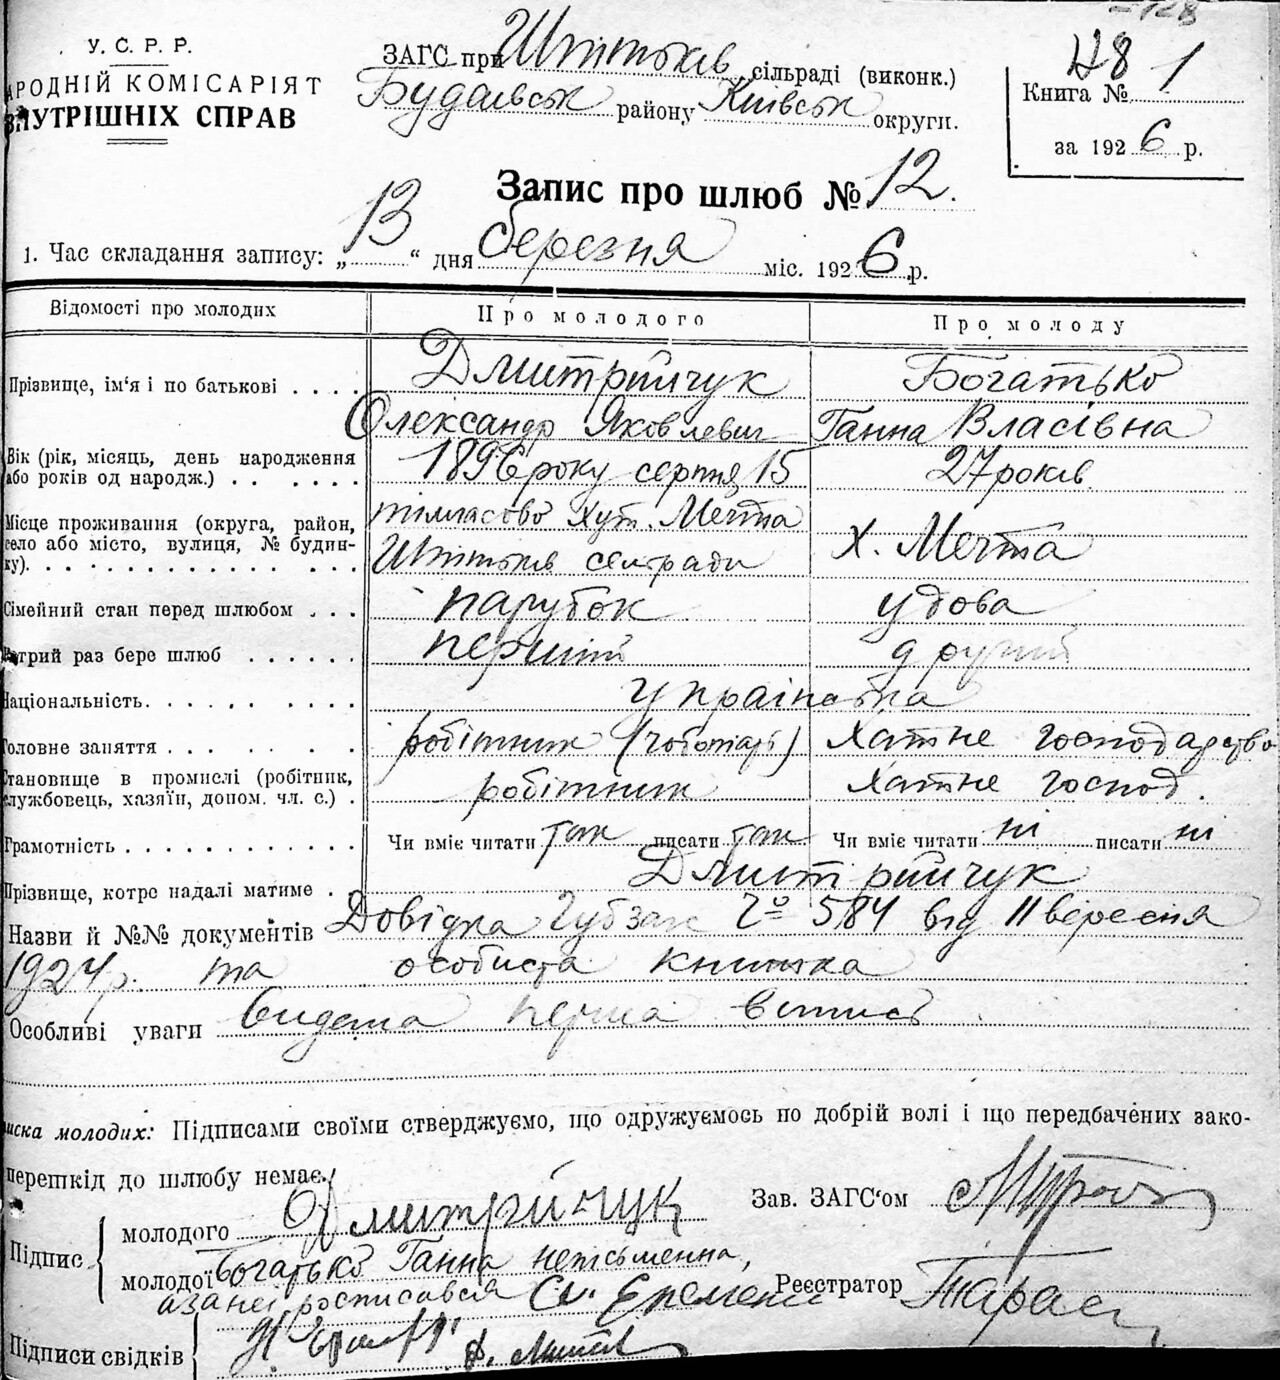 128
У. С. Р. Р.
АРОДНІЙ КОМІСАРІЯТ
ВНУТРІШНІХ СПРАВ
ЗАГС при Шпітьків сільраді (виконк.)
Будаївськ району Київськ округи.
Н8 1
Книга №
за 1926 р.
Запис про шлюб № 12.
1. Час складання запису: „13“ дня березня міс. 1926 р.
Відомості про молодих
Про молодого
Про молоду
Прізвище, ім‘я і по батькові . . . .
Дмитрійчук
Олександр Яковлевич
Богатько
Ганна Власівна
Вік (рік, місяць, день народження
або років од народж.) . . . . . .
1896 року серпня 15
27 років
Місце проживання (округа, район,
село або місто, вулиця, № будин-
ку). . . . . . . . . . . . . . .
тімчасово Хут. Мечта
Шпітьків сельради
х. Мечта
Сімейний стан перед шлюбом . . .
парубок
удова
котрий раз бере шлюб . . . . . .
перший
другий
Національність. . . . . . . . . .
українська
Головне заняття . . . . . . . .
робітник (чоботарь)
Хатне господарство
Становище в промислі (робітник,
службовець, хазяїн, допом. чл. с.) .
робітник
Хатне господ.
Грамотність . . . . . . . . . . . .
Чи вміє читати так писати так
Чи вміє читати ні писати ні
Прізвище, котре надалі матиме .
Дмитрійчук
Назви й №№ документів Довідка Губзаг Ч⁰ 584 від 11 вересня
1924 р. та особиста книжка
Особливі уваги Видана перша випись
иска молодих: Підписами своїми стверджуємо, що одружуємось по добрій волі і що передбачених зако-
перешкід до шлюбу немає.
Підпис
молодого Дмитрійчук
молодої Богатько Ганна неписьменна,
а за неї росписався Ст. Еременко
Зав. ЗАГС‘ом
Реєстратор Тарас
Підписи свідків